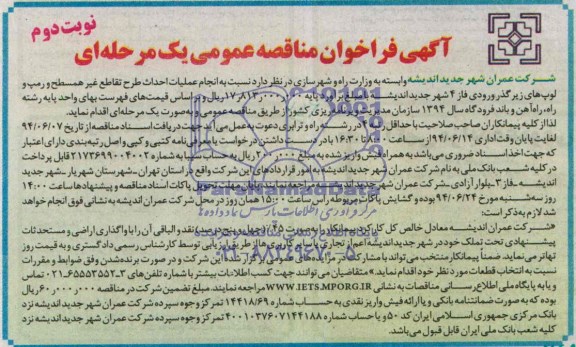 نوبت دوم
آگهی فراخوان مناقصه عمومی یک مرحله‌ای
شرکت عمران شهر جدید اندیشه وابسته به وزارت راه و شهرسازی در نظر دارد نسبت به انجام عملیات احداث طرح تقاطع غیر همسطح و رمپ و
لوپ‌های زیرگذر ورودی فاز ۴ شهر جدید اندیشه ریال و بر اساس قیمت‌های فهرست بهای واحد پایه رشته
راه، راه‌آهن و باند فرودگاه سال ۱۳۹۴ سازمان کشور از طریق مناقصه عمومی و به صورت یک مرحله‌ای اقدام نماید.
لذا از کلیه پیمانکاران صاحب صلاحیت با حداقل در رشته راه و ترابری دعوت به عمل می‌آید جهت دریافت اسناد مناقصه از تاریخ ۹۴/۰۶/۰۷
لغایت پایان وقت اداری ۹۴/۰۶/۱۴ از ساعت ۸:۰۰ تا ۱۶:۳۰ با در دست داشتن درخواست یا معرفی‌نامه کتبی و کپی واصل رتبه‌بندی دارای اعتبار
که جهت اخذ اسناد ضروری می‌باشد به همراه فیش واریز شده به مبلغ ریال به حساب سیبا به شماره ۲۱۷۳۶۹۹۰۰۴۰۰۲ قابل پرداخت
در کلیه شعب بانک ملی به نام شرکت عمران شهر جدید اندیشه به امور قراردادهای این شرکت واقع در استان تهران ـ شهرستان شهریار ـ شهر جدید
اندیشه ـ فاز ۳ ـ بلوار آزادی ـ شرکت عمران شهر جدید اندیشه مراجعه نمایند. پایان مهلت تحویل پاکات اسناد مناقصه و پیشنهادها ساعت ۱۴:۰۰
روز سه‌شنبه مورخ ۹۴/۰۶/۲۴ بوده و گشایش پاکات مربوطه راس ساعت ۱۵:۰۰ همان روز در محل شرکت عمران اندیشه به نشانی فوق انجام خواهد
شد لازم به ذکر است:
شرکت عمران اندیشه معادل خالص کل کارکرد پیمانکار را به صورت نقد و الباقی آن را با واگذاری اراضی و مستحدثات
پیشنهادی تحت تملک خود در شهر جدید اندیشه اعم از تجاری یا سایر کاربری‌ها از طریق ارزیابی توسط کارشناس رسمی دادگستری و به قیمت روز
تهاتر می‌نماید. ضمناً پیمانکار منتخب می‌تواند با مشارکت شرکت و در صورت برنده شدن وفق ضوابط و مقررات
نسبت به انتخاب قطعات مورد نظر خود اقدام نماید. متقاضیان می‌توانند جهت کسب اطلاعات بیشتر با شماره تلفن‌های ۳-۶۵۵۵۳۵۵۲-۰۲۱ تماس
و یا به پایگاه ملی اطلاع‌رسانی مناقصات به نشانی WWW.IETS.MPORG.IR مراجعه نمایند. مبلغ تضمین شرکت در مناقصه ریال
بوده که به صورت ضمانتنامه بانکی و یا ارائه فیش واریز نقدی به حساب شماره ۱۴۴۱۸/۶۹ تمرکز وجوه سپرده شرکت عمران شهر جدید اندیشه نزد
بانک مرکزی جمهوری اسلامی ایران کد ۵۰ و یا حساب شماره ۴۰۰۱۰۳۷۶۰۷۱۴۴۱۸۸ تمرکز وجوه سپرده شرکت عمران شهر جدید اندیشه نزد
کلیه شعب بانک ملی ایران قابل قبول می‌باشد.